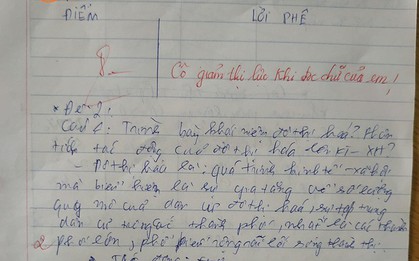 ĐIỂM LỜI PHÊ
8 Cô giảm thị lực khi đọc chữ của em!
* Đề 2:
Câu 1: Trình bày khái niệm đô thị hoá? Phân
tích tác động của đô thị hóa đến KT-XH?
- Đô thị hoá là: quá trình kinh tế - xã hội
mà biểu hiện là sự gia tăng về số lượng
quy mô của dân cư đô thị hoá, sự tập trung
dân cư trong các thành phố, nhất là các thành
2 phố lớn, phổ biến rộng rãi lối sống thành thị.